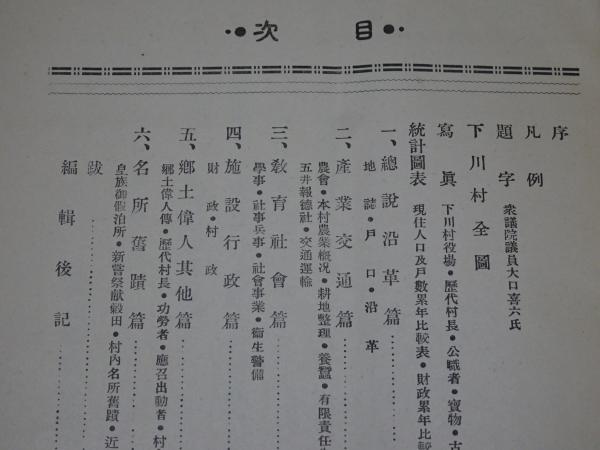 目次
序
凡例
題字 衆議院議員大口喜六氏
下川村全圖
寫眞 下川村役場・歴代村長・公職者・寶物・古
統計圖表 現住人口及戸數累年比較表・財政累年比較
一、總說沿革篇
地誌・戸口・沿革
二、產業交通篇
農會・本村農業槪況・耕地整理・養蠶・有限責任
五井報德社・交通運輸
三、敎育社會篇
學事・社事兵事・社會事業・衞生警備
四、施設行政篇
財政・村政
五、鄕土偉人其他篇
鄕土偉人傳・歷代村長・功勞者・應召出動者・村
六、名所舊蹟篇
皇族御假泊所・新嘗祭献穀田・村內名所舊蹟・近
跋
編輯後記